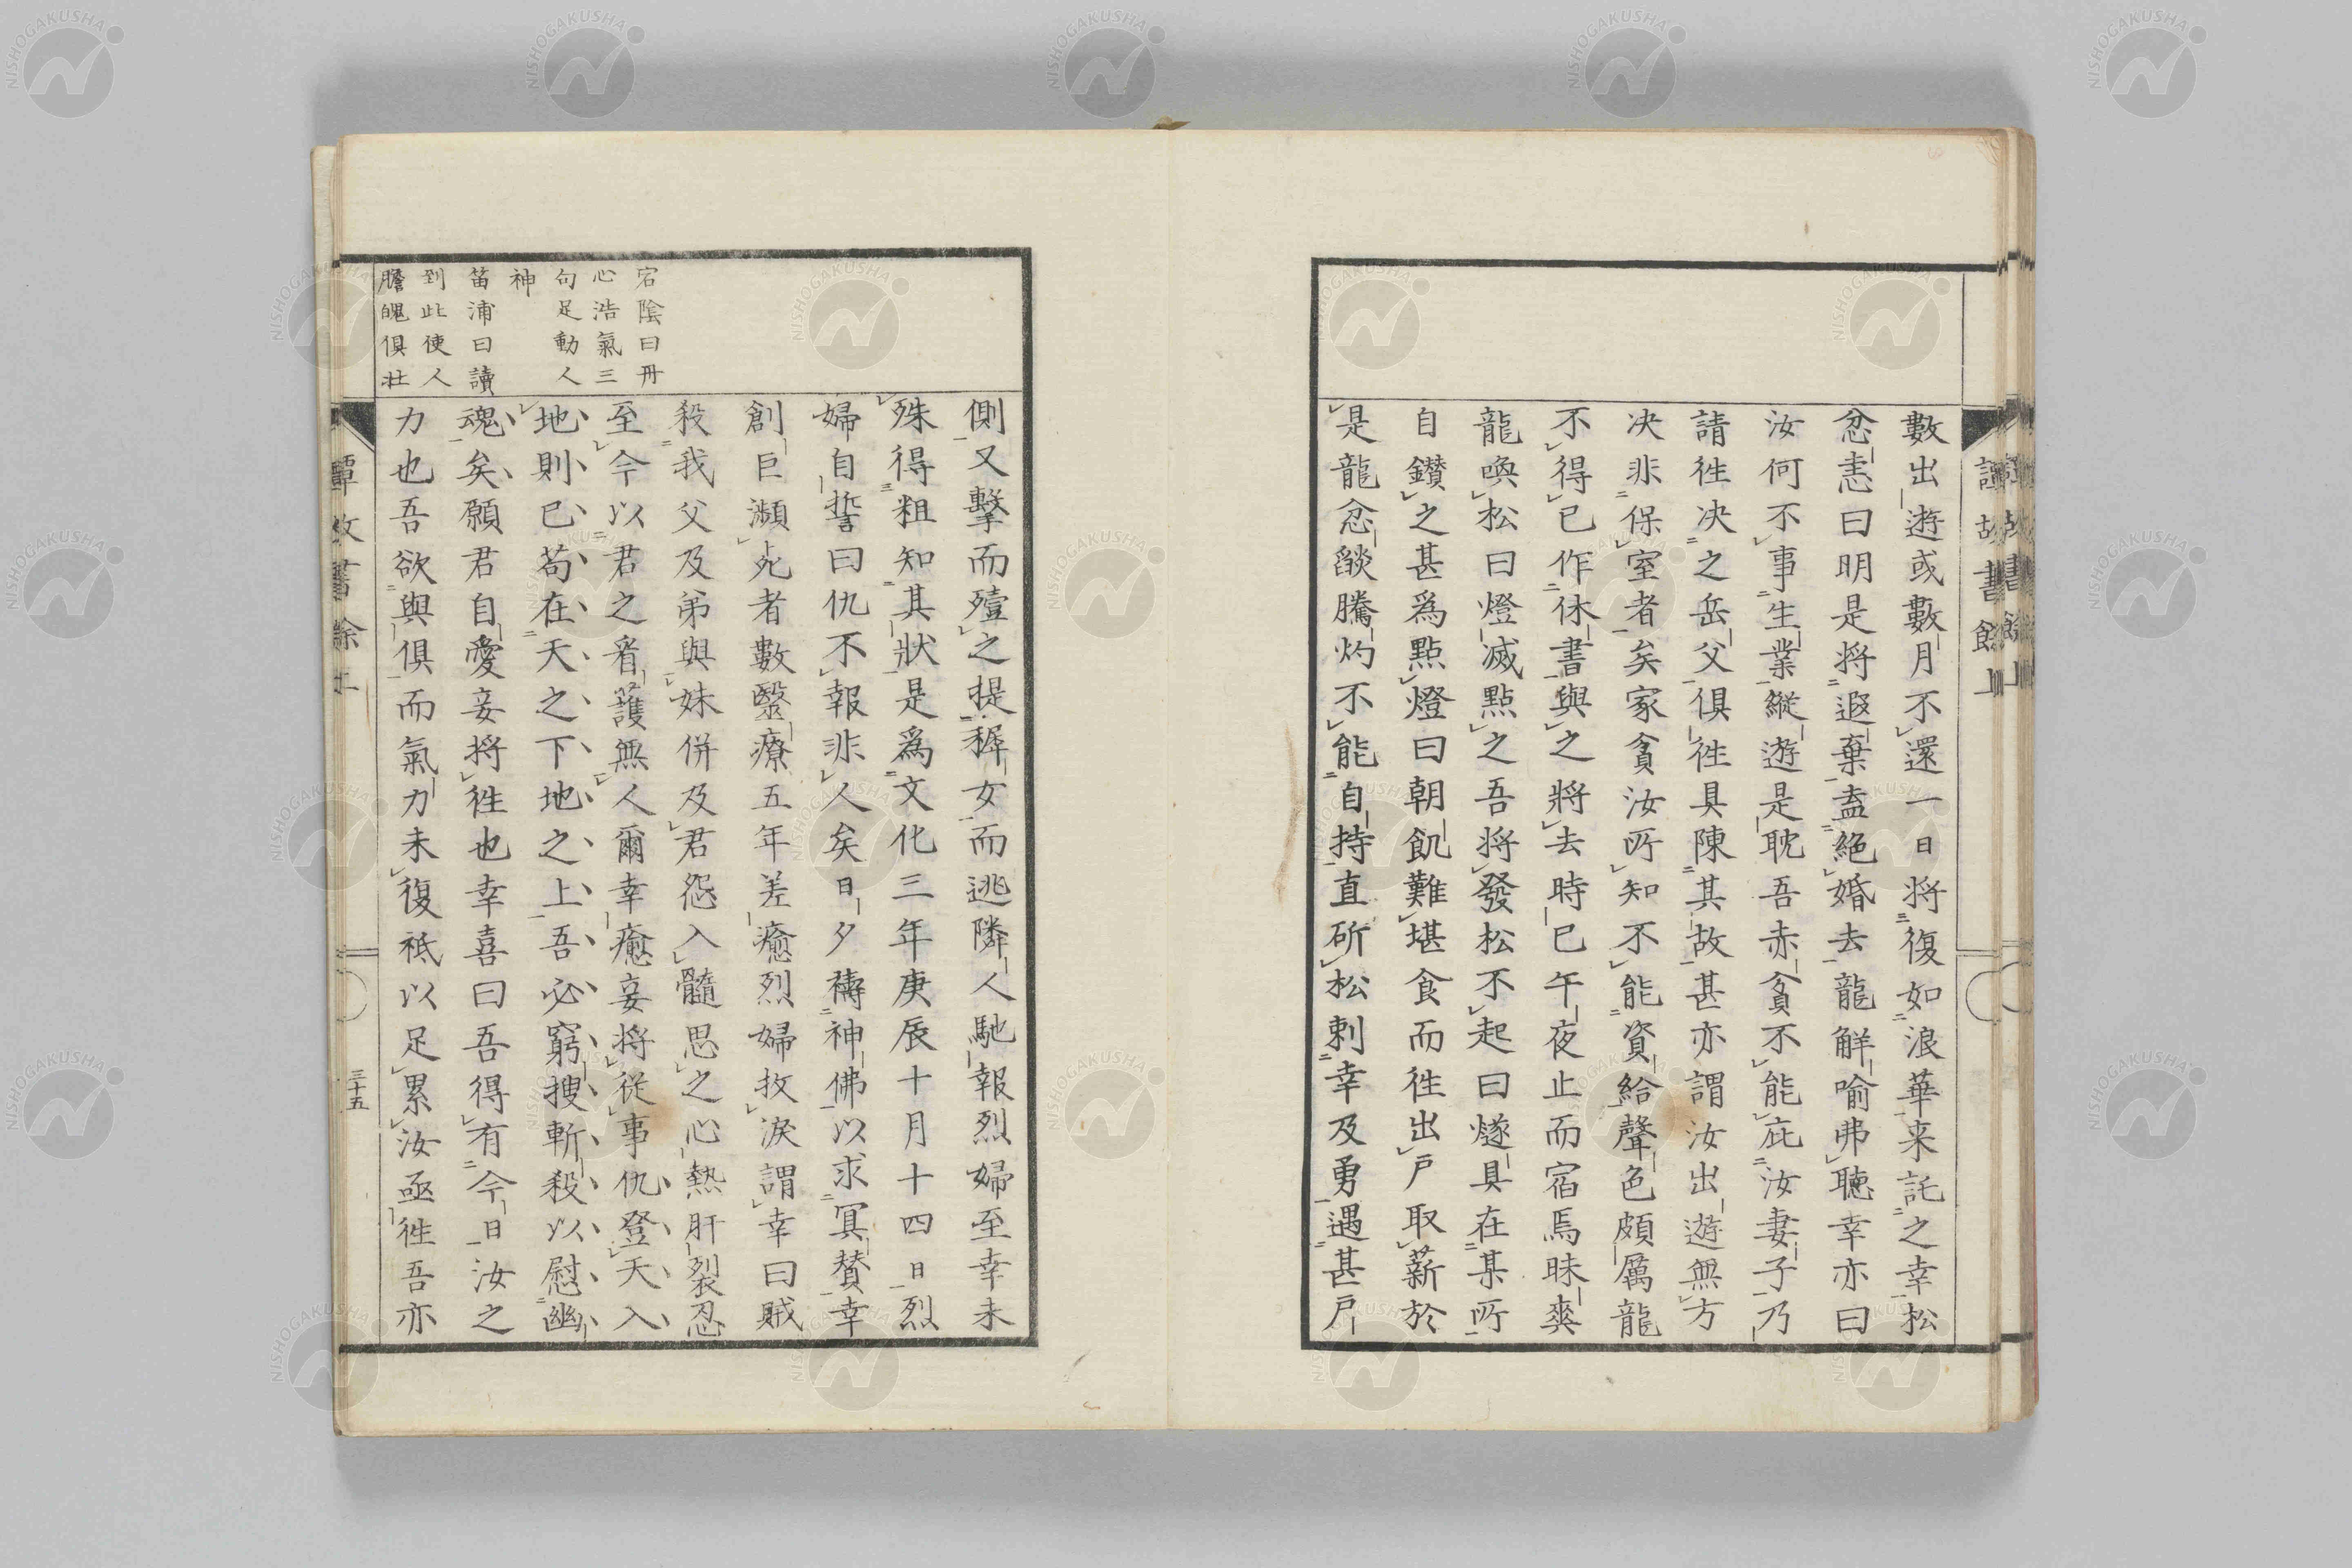 數出遊或數月不還一日將復如浪華来託之幸松
忿恚曰明是將遐棄盍絕婚去龍解喻弗聽幸亦曰
汝何不事生業縱遊是耽吾赤貧不能庇汝妻子乃
請徃决之岳父俱徃具陳其故甚亦謂汝出遊無方
决非保室者矣家貧汝所知不能資給聲色頗厲龍
不得已作休書與之將去時已午夜止而宿焉昧爽
龍喚松曰燈滅點之吾將發松不起曰燧具在某所
自鑚之甚為點燈曰朝飢難堪食而徃出戶取薪於
是龍忿燄騰灼不能自持直斫松剌幸及勇遇甚戶
側又擊而殪之提穉女而逃隣人馳報烈婦至幸未
殊得粗知其狀是爲文化三年庚辰十月十四日烈
婦自誓曰仇不報非人矣日夕禱神佛以求冥賛幸
創巨瀕死者數醫療五年差癒烈婦抆淚謂幸曰賊
殺我父及弟與妹併及君怨入髓思之心熱肝裂忍
至今以君之看護無人爾幸癒妾將從事仇登天入
地則已苟在天之下地之上吾必窮搜斬殺以慰幽
魂矣願君自愛妾將徃也幸喜曰吾得有今日汝之
力也吾欲與俱而氣力未復祗以足累汝亟徃吾亦
宕陰曰丹
心浩氣三
句足動人
神
笛浦曰讀
到此使人
膽魄俱壮
三十五